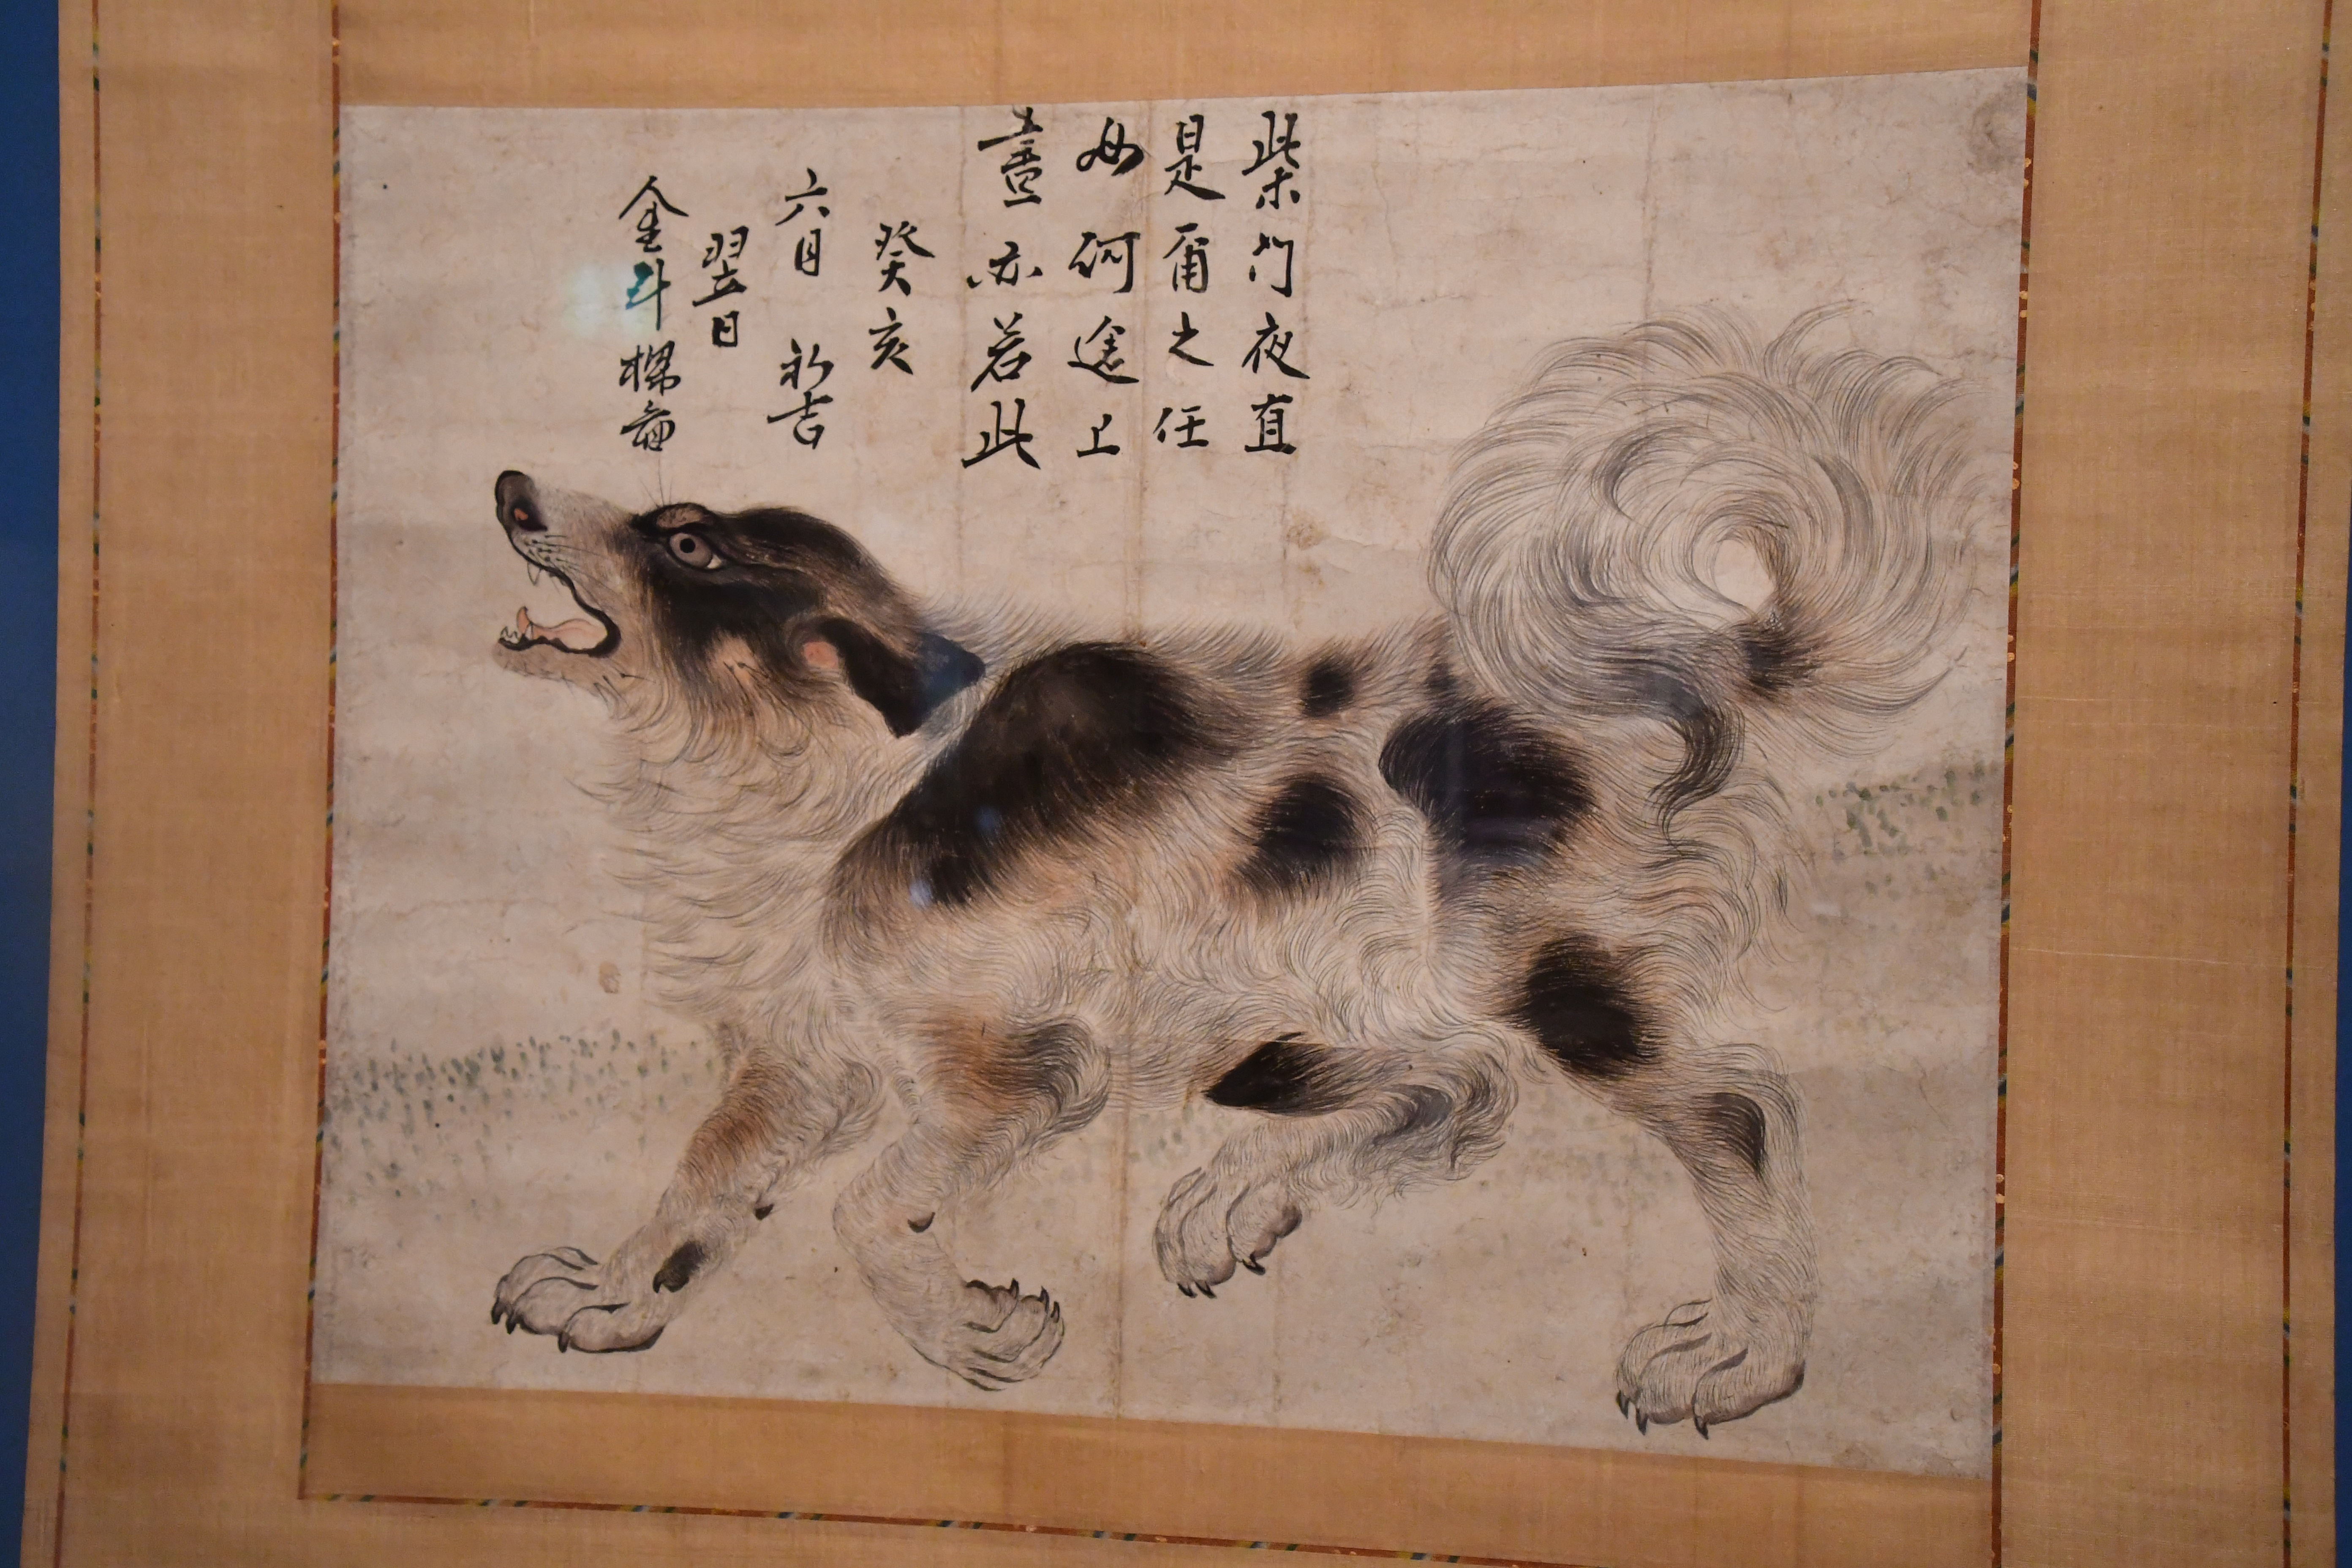 柴門夜直
是爾之任
如何途上
晝亦若此
癸亥
六月初吉
翌日
金斗樑圖